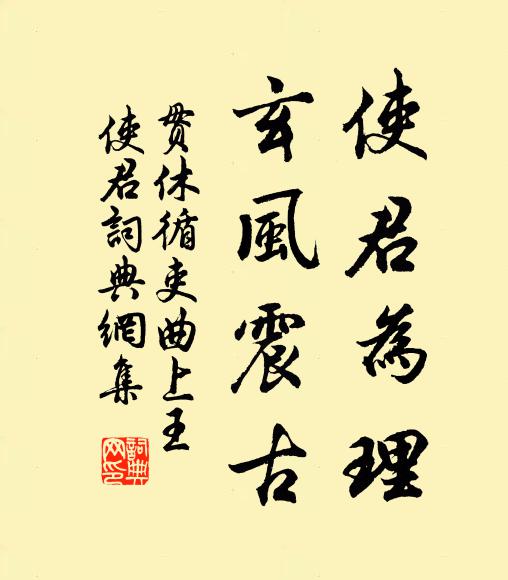 使君為理
玄風震古
貫休循吏曲上王
使君詞典網集
詞典网印